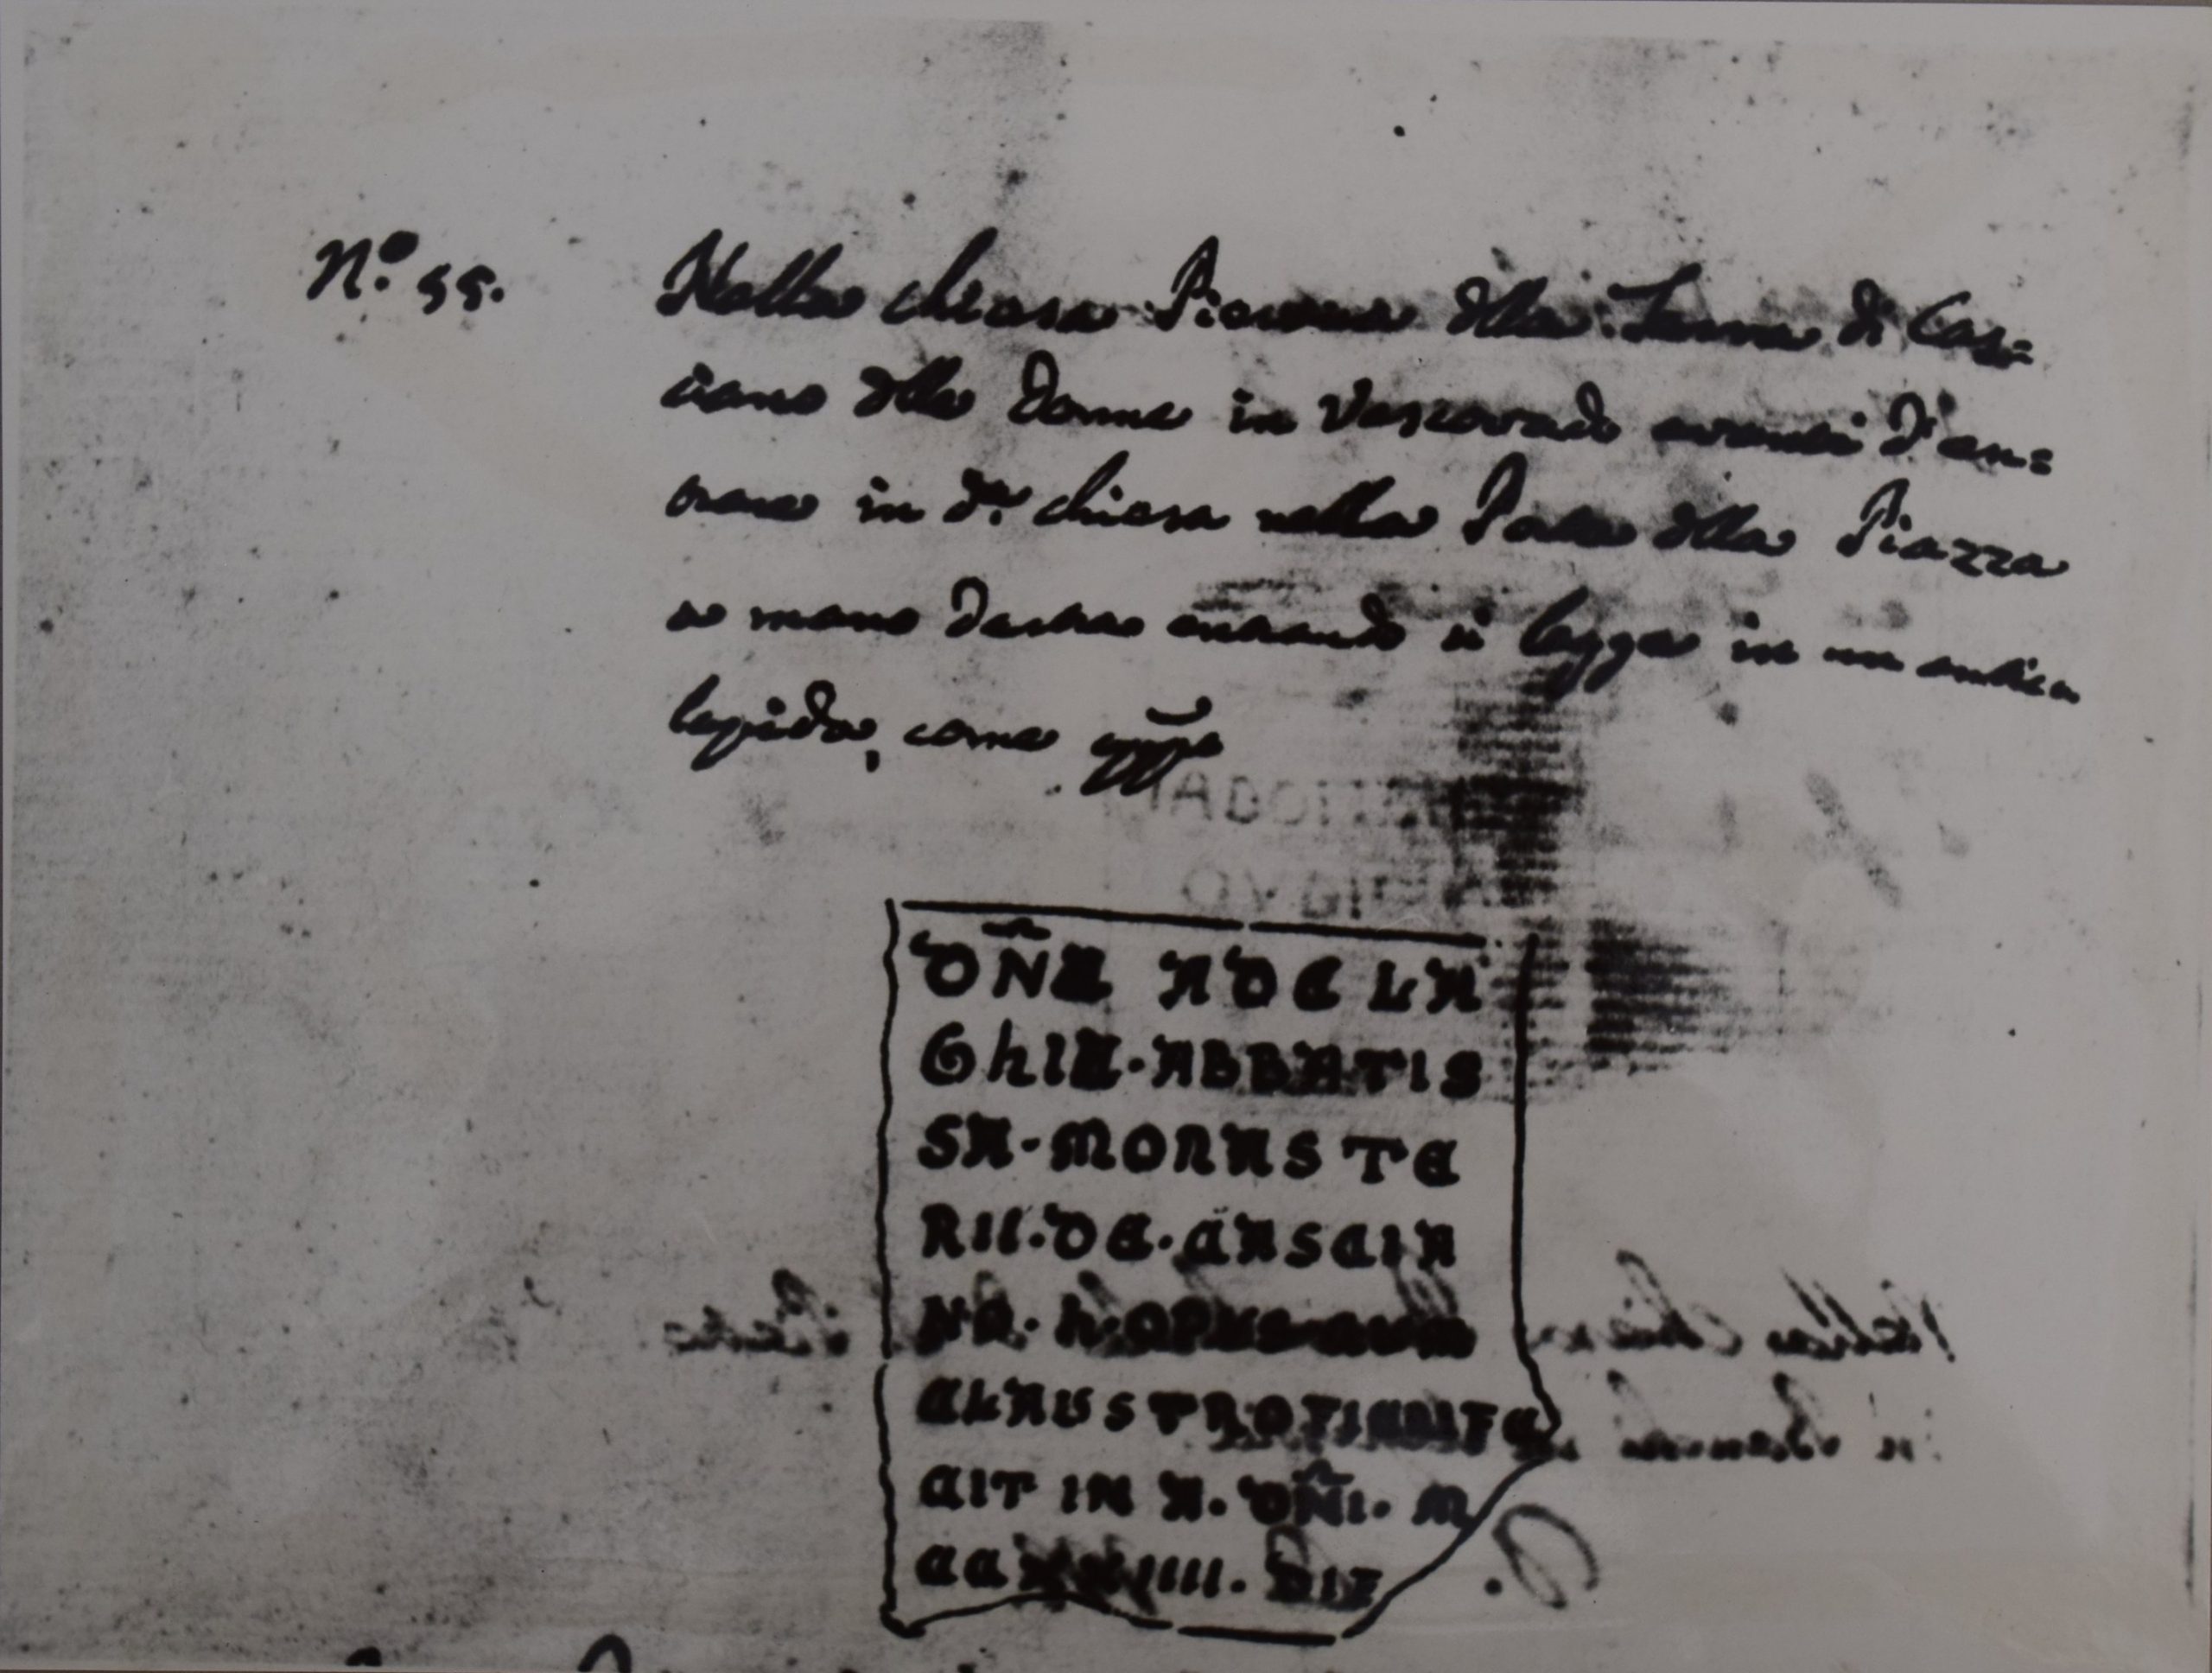 N.º 55. Nella chiesa Pievana della Terra di Cas=
ciano delle Donne in Vescovado avanti d'en=
trare in d.ª chiesa nella Porta della Piazza
a mano destra entrando si legge in un antica
lapida, come
DÑE ADELA
GHIE·ABBATIS
SA·MONASTE
RII·DE·CASCIA
NO·H·OPUS·CUM
CLAUSTRO
CIT IN A. DÑI. M
CCXXIIII. DIE